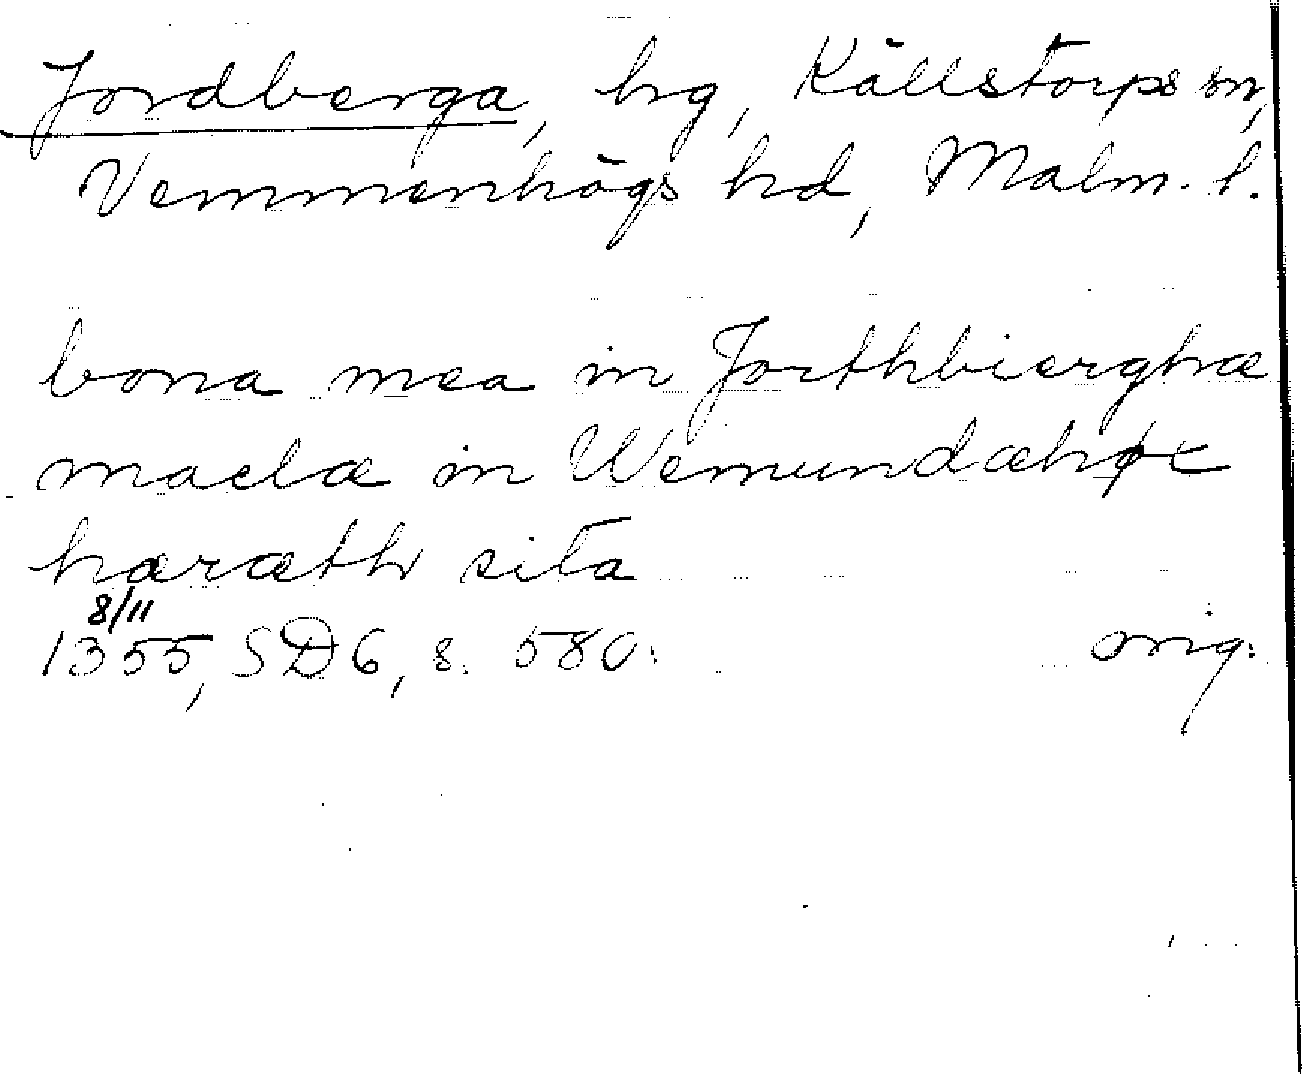 Jordberga, hg, Källstorps sn,
Vemmenhögs hd, Malm. l.
bona mea in Jorthbierghæ
maelæ in Wemundæhøx
hæræth sita
8/11
1355, SD 6, s. 580. orig.